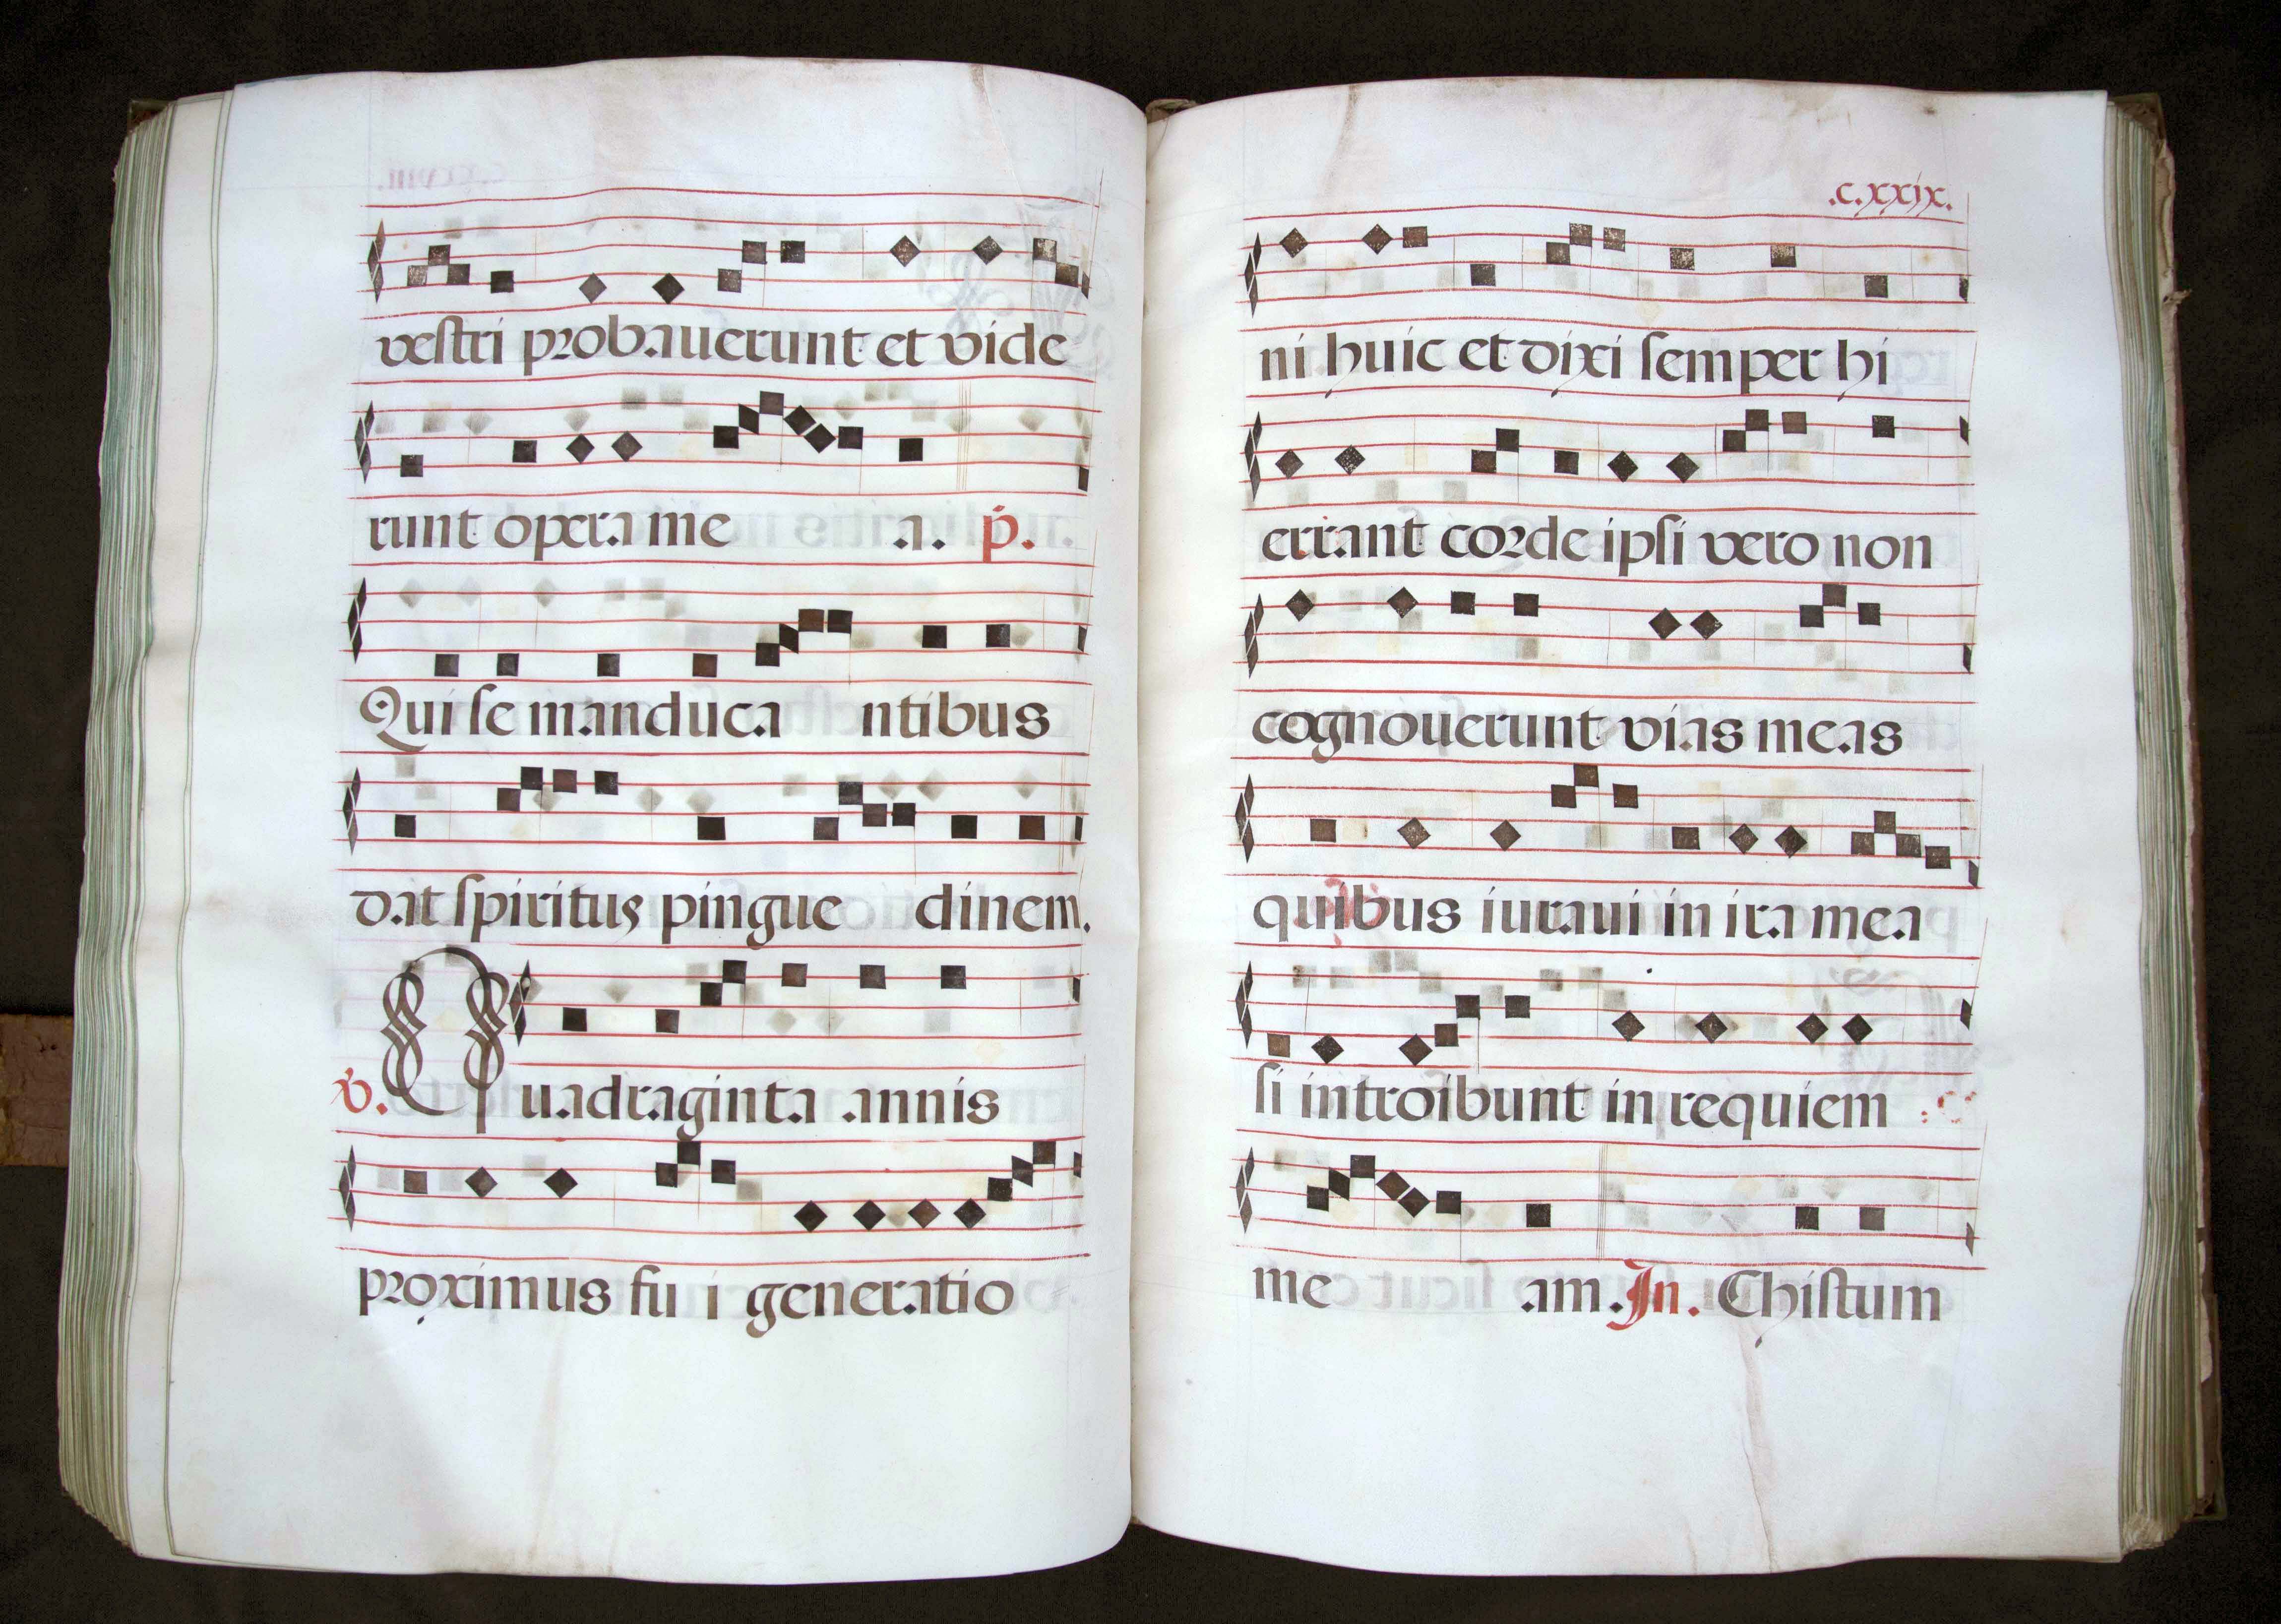 vestri probauerunt et vide
runt opera me a. p.
Qui se manduca ntibus
dat spiritus pingue dinem.
v. Quadraginta annis
proximus fui generatio
.c.xxix.
ni huic et dixi semper hi
errant corde ipsi vero non
cognouerunt vias meas
quibus iuraui in ira mea
si introibunt in requiem
me am. In. Christum